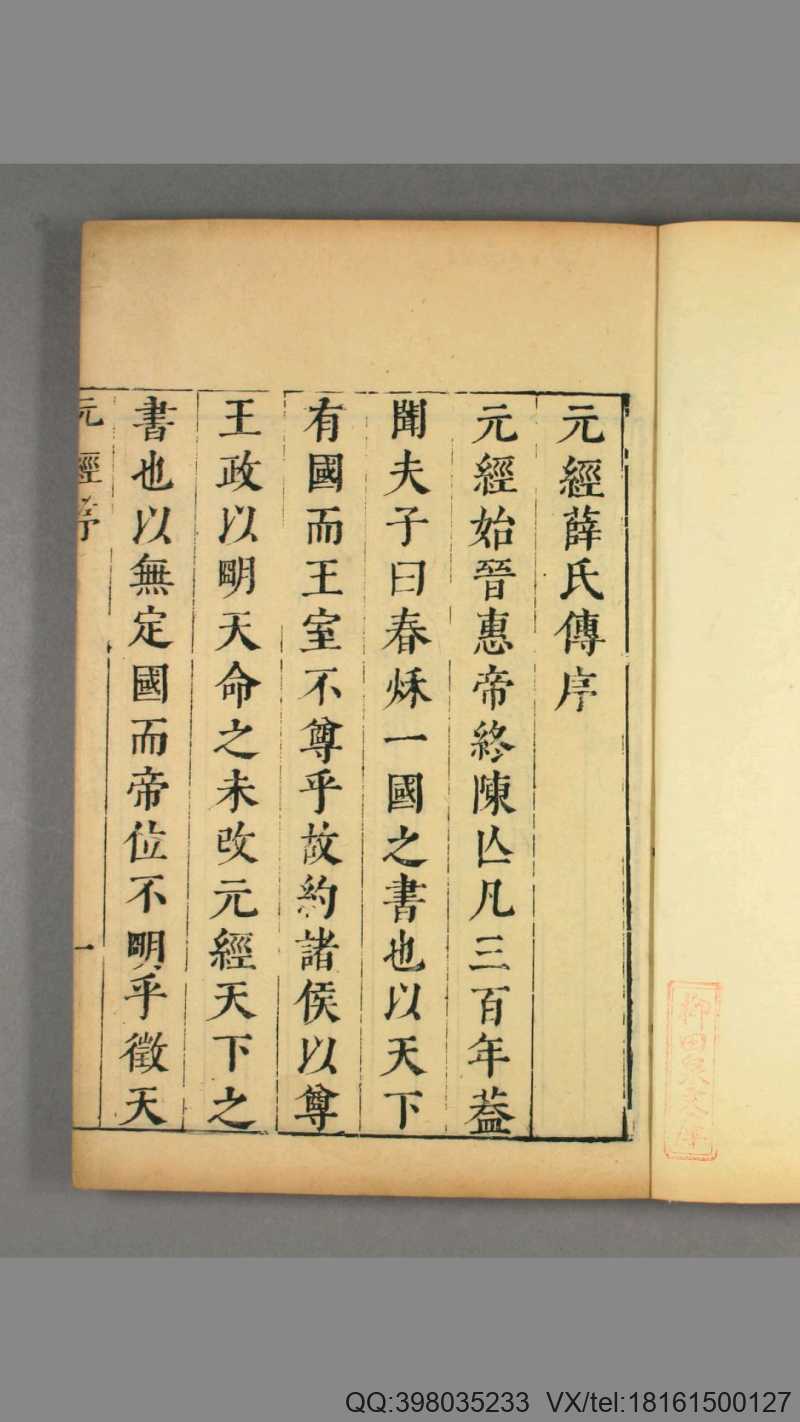 元經薛氏傳序
元經始晉惠帝終陳亾凡三百年葢
聞夫子曰春秌一國之書也以天下
有國而王室不尊乎故約諸侯以尊
王政以明天命之未改元經天下之
書也以無定國而帝位不明乎徵天
元經序
一
柳田泉文庫
QQ:398035233 VX/tel:18161500127